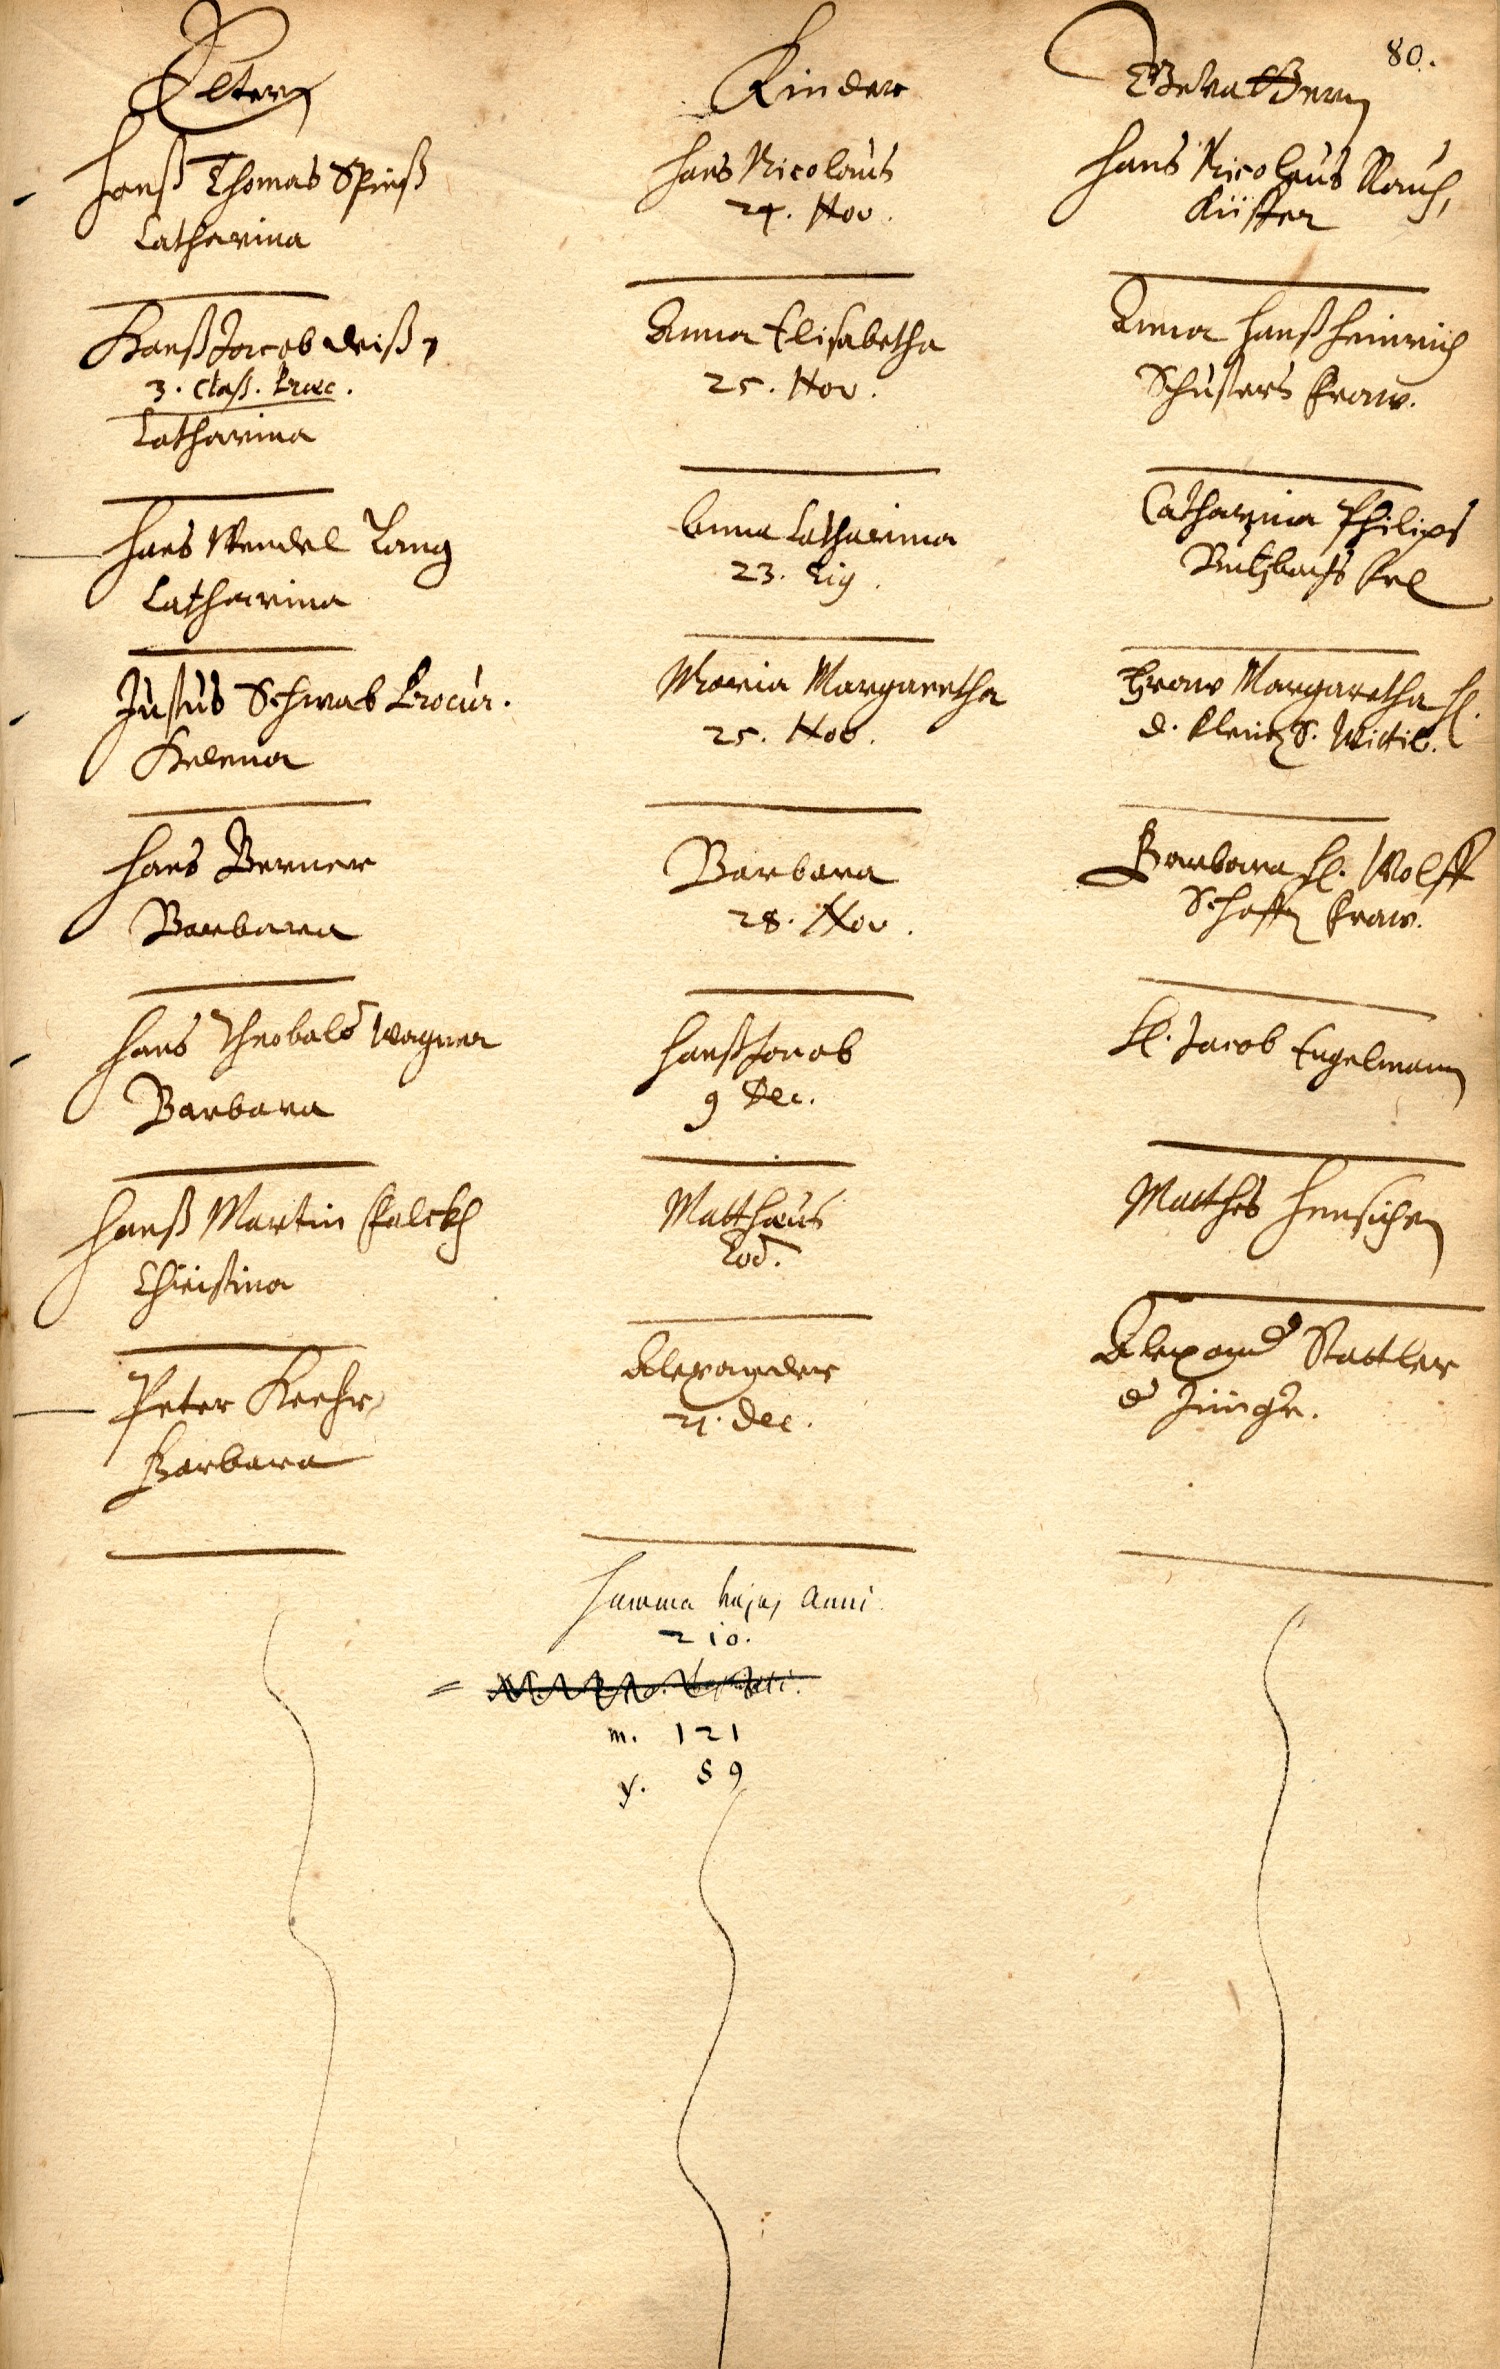 80.
Eltern
Kinder
Gevattern
Hanß Thomas Spieß
Catharina
Hans Nicolaus
24. Nov.
Hans Nicolaus Rauch,
Küster
Hanß Jacob Weiß,
3. Class. Præc.
Catharina
Anna Elisabetha
25. Nov.
Anna Hanß Heinrich
Schusters Fraw.
Hans Wendel Lang
Catharina
Anna Catharina
23. Eig.
Catharina Philips
Butzbachs
Justus Schwab Procur.
Helena
Maria Margaretha
25. Nov.
Fraw Margaretha H.
D. S. Wittib.
Hans Berner
Barbara
Barbara
28. Nov.
Barbara H. Wolff
Fraw.
Hans Theobald Wagner
Barbara
Hanß Jacob
9 Dec.
H. Jacob Engelmann
Hanß Martin Falckh
Christina
Matthæus
Eod.
Matthes
Peter Kehr
Barbara
Alexander
21. Dec.
Alexander Stattler
der Jünger.
Summa hujus Anni
210.
m. 121
f. 89